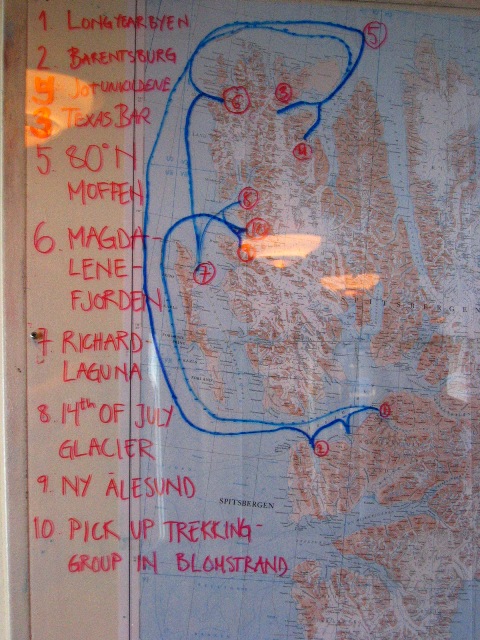 1. LONGYEARBYEN
2 BARENTSBURG
JOTUNKILDENE
TEXAS BAR
5. 80°N
MOFFEN
6. MAGDA-
LENE-
FJORDEN
7. RICHARD-
LAGUNA
8. 14th OF JULY
GLACIER
9. NY ÅLESUND
10. PICK UP TREKKING-
GROUP IN BLOMSTRAND
5
6
3
4
8
10
7
2
SPITSBERGEN